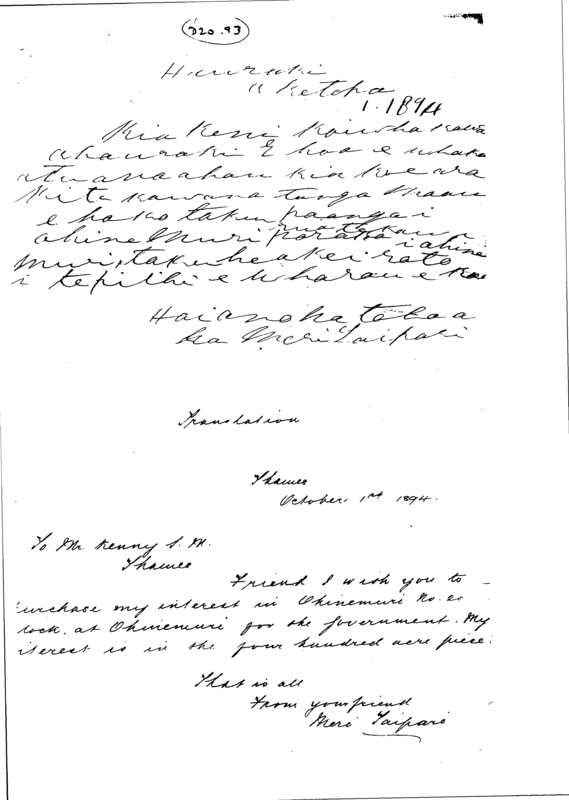 D20.93
Hauraki
Oketopa
1. 1894
Kia Keni Kaiwhakawa
ahauraki E hoa e whaka
atu ana ahau kia koe ara
kite kawanatanga Maau
e hoko taku paanga i
ohinemuri poraka rua tekau i ohine
muri, taku hea kei roto
i te pihi e wha rau eka
Haianoka tohoa
ka Meri Taipari
Translation
Thames
October, 1st 1894.
To Mr. Kenny S. M.
Thames
Friend I wish you to
urchase my interest in Ohinemuri No. 20
lock, at Ohinemuri for the Government. My
terest is in the four hundred acre piece.
That is all
From your friend
Meri Taipari